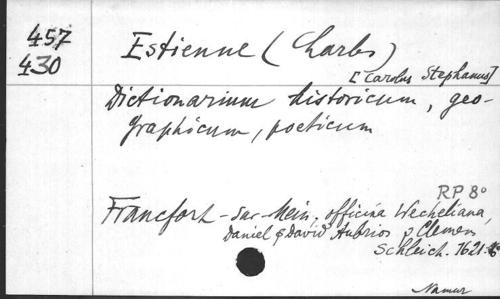 457
430
Estienne (Charles)
[Carolus Stephanus]
Dictionarium historicum, geo-
graphicum, poeticum
RP 8°
Francfort-sur-Mein, officina Wecheliana,
Daniel & David Aubrios & Clemen
Schleich. 1621.
Namur